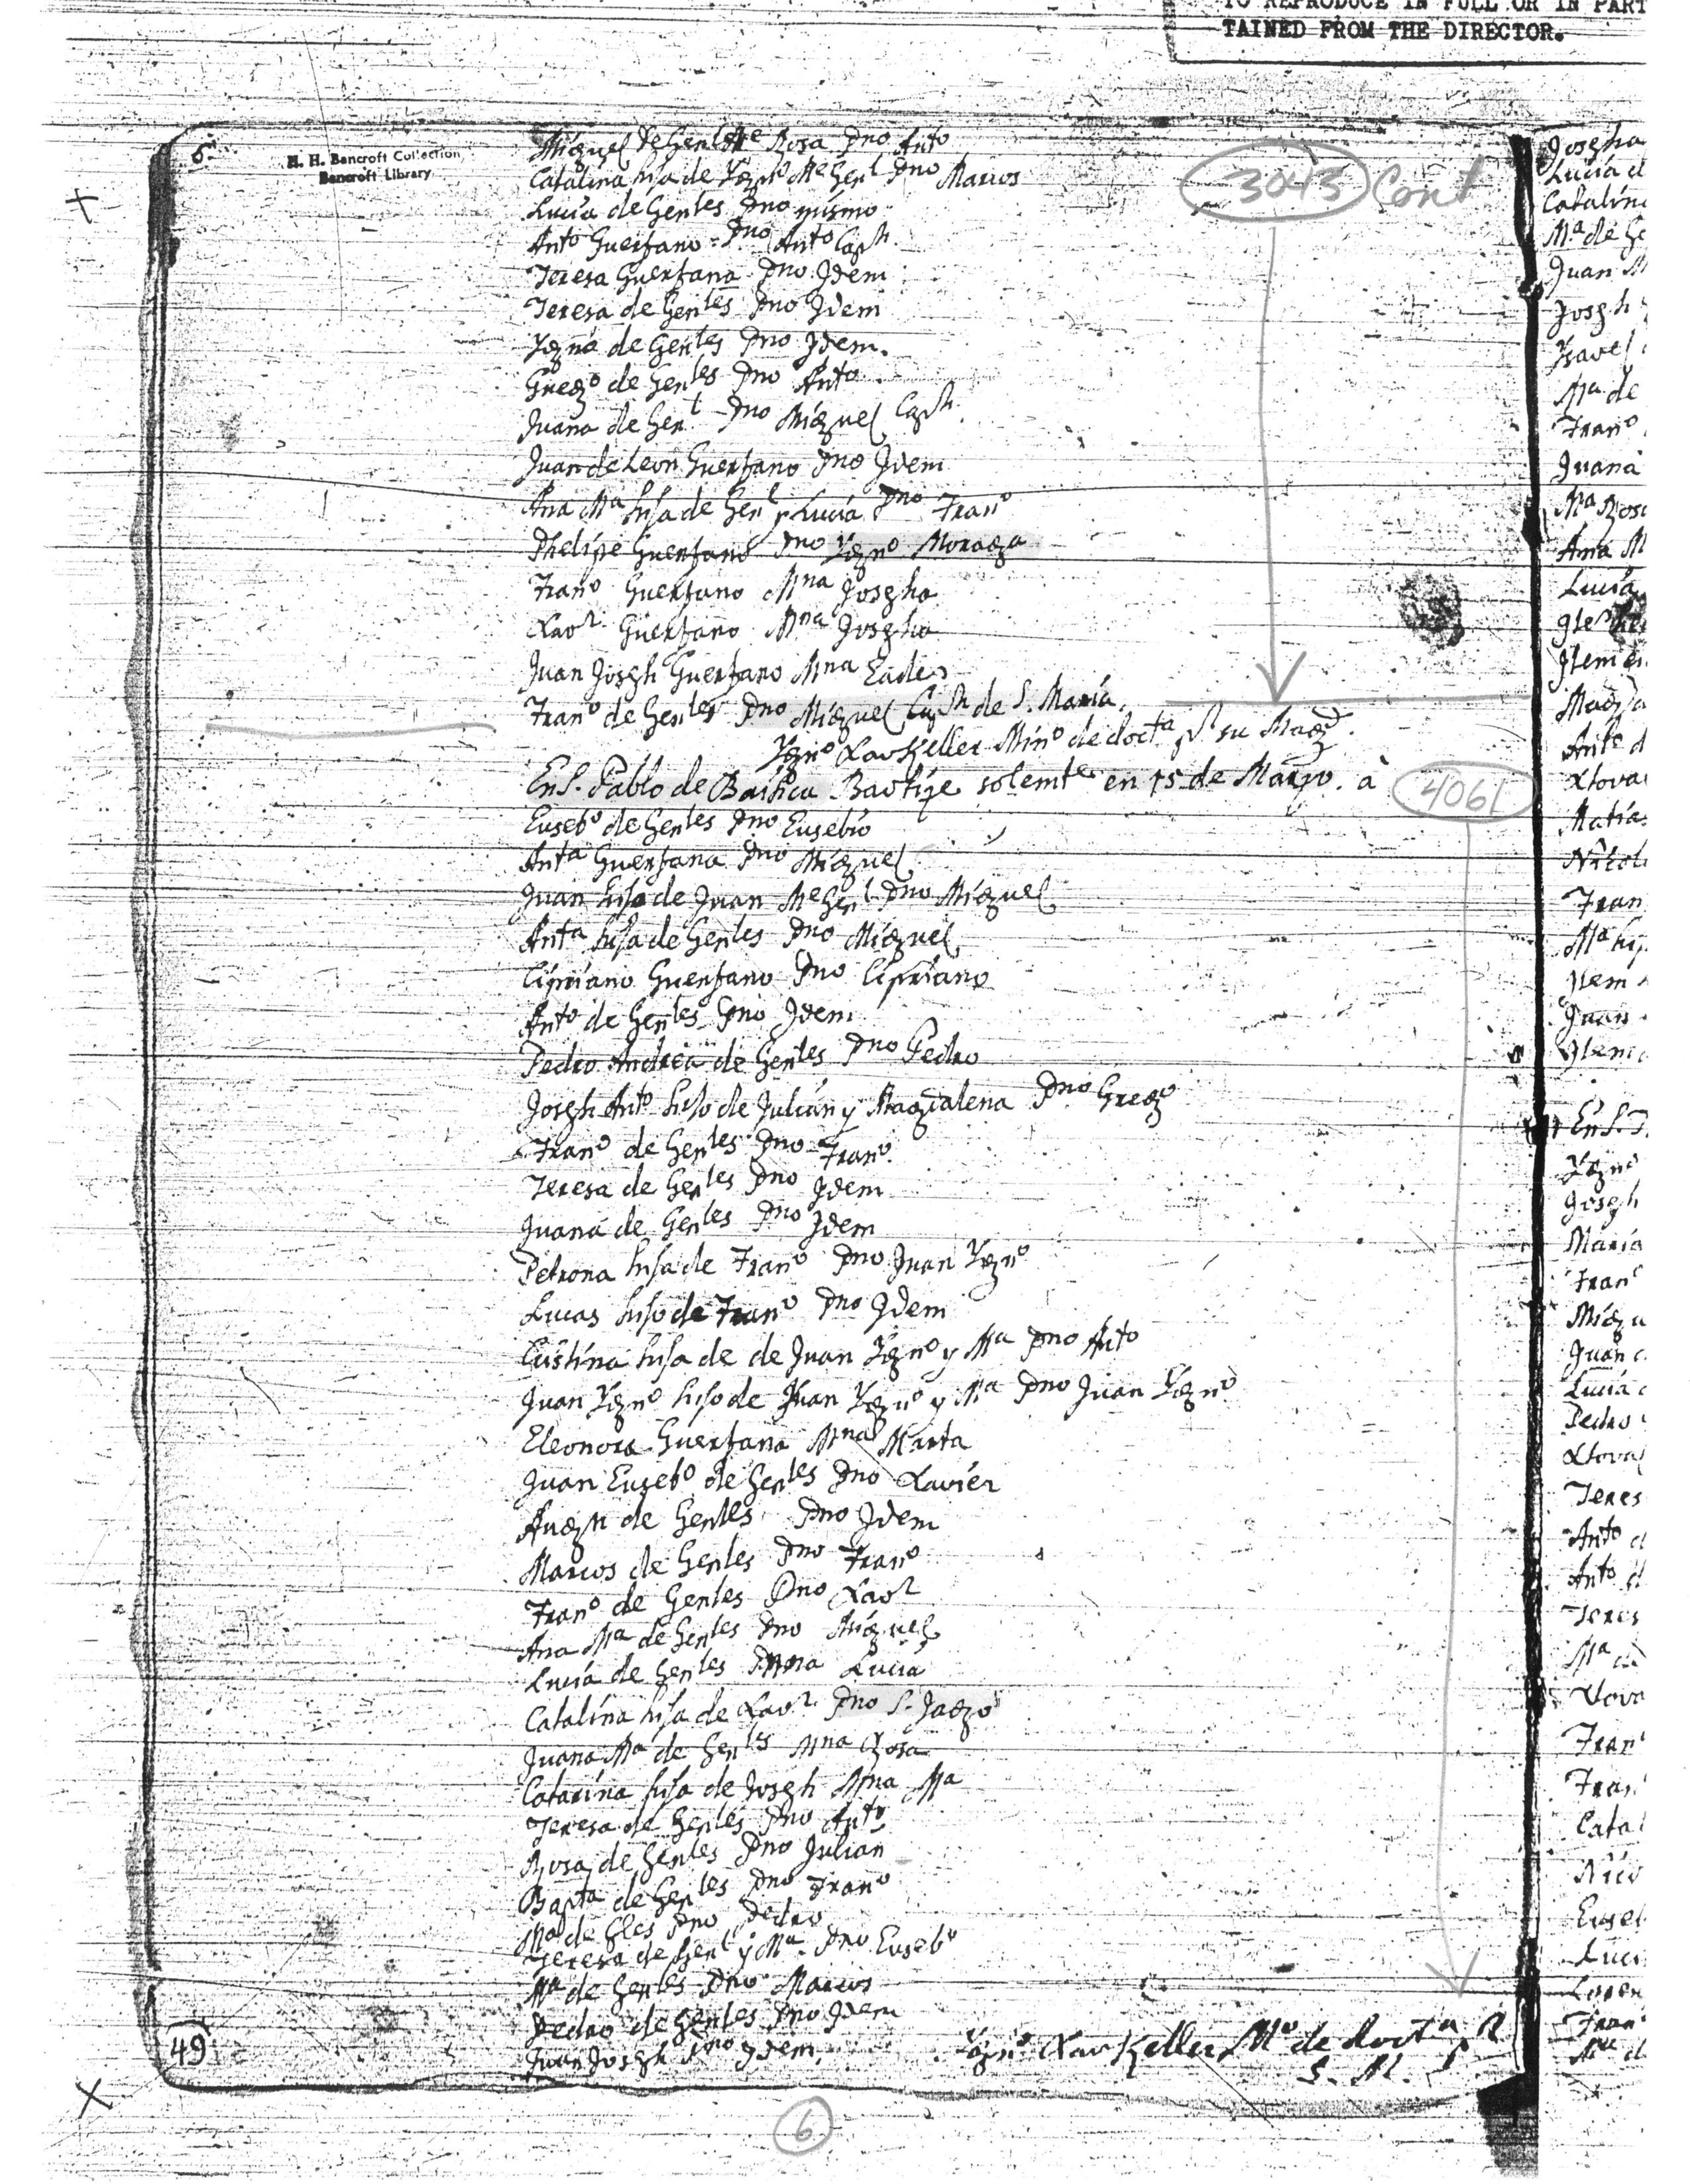 TO REPRODUCE IN FULL OR IN PART
TAINED FROM THE DIRECTOR.
H. H. Bancroft Collection
Bancroft Library
3043 Cont
Miguel de Gent Me Rosa Pno Anto
Catalina hija de Ygno Me Gent Pno Marcos
Lucia de Gentes Pno mismo
Anto Guerfano Pno Anto Capn
Teresa Guerfana Pno Jdem
Teresa de Gentes Pno Jdem
Ygna de Gentes Pno Jdem.
Grego de Gentes Pno Anto
Juana de Gent Pno Miguel Capn.
Juan de Leon Guerfano Pno Jdem
Ana Ma hija de Gent y Lucia Pno Frano
Phelipe Guerfano Pno Ygno Moraga
Frano Guerfano Mna Josepha
Xavr Guerfano Mna Josepha
Juan Joseph Guerfano Mna Eadem
Frano de Gentes Pno Miguel Capn de S. Maria.
Ygno Xav Keller Mino de docta pr su Magd.
En S. Pablo de Baibcu Bautize solemte en 15 de Marzo. à
4061
Eusebo de Gentes Pno Eusebio
Anta Guerfana Pno Miguel
Juan hijo de Juan Me Gent Pno Miguel
Anta hija de Gentes Pno Miguel
Cipriano Guerfano Pno Cipriano
Anto de Gentes Pno Jdem
Pedro Andrea de Gentes Pno Pedro
Joseph Anto hijo de Julián y Magdalena Pno Grego
Frano de Gentes Pno Frano.
Teresa de Gentes Pno Jdem
Juana de Gentes Pno Jdem
Petrona hija de Frano Pno Juan Ygno
Lucas hijo de Frano Pno Jdem
Cristina hija de de Juan Ygno y Ma Pno Anto
Juan Ygno hijo de Juan Ygno y Ma Pno Juan Ygno
Eleonora Guerfana Mna Marta
Juan Eusebo de Gentes Pno Xavier
Augn de Gentes Pno Jdem
Marcos de Gentes Pno Frano
Frano de Gentes Pno Xavr
Ana Ma de Gentes Pno Miguel
Lucia de Gentes Mna Lucia
Catalina hija de Xavr Pno S. Jago
Juana Ma de Gentes Mna Rosa
Catarina hija de Joseph Mna Ma
Teresa de Gentes Pno Anto
Rosa de Gentes Pno Julian
Bapta de Gentes Pno Frano
Ma de Gles Pno Pedro
Teresa de Gent y Ma. Pno Eusebo
Ma de Gentes Pno Marcos
Pedro de Gentes Pno Jdem
Juan Joseph Pno Jdem.
Ygno Xav Keller Mo de docta pr
S. M.
49
6
Josepha
Lucia d
Catalin
Ma de Ge
Juan M
Joseph
Ysavel
Ma de
Frano
Juana
Ma Rosa
Ana M
Lucia
Anto d
Xtova
Matias
Nicol
Fran
Ma hij
Jtem
Juan
Jtem
En S.
Ygno
Joseph
Maria
Fran
Migu
Juan
Lucia
Pedro
Xtoval
Teres
Anto d
Anto d
Teres
Ma
Xtova
Fran
Fran
Catal
Nico
Euseb
Luci
Loren
Fran